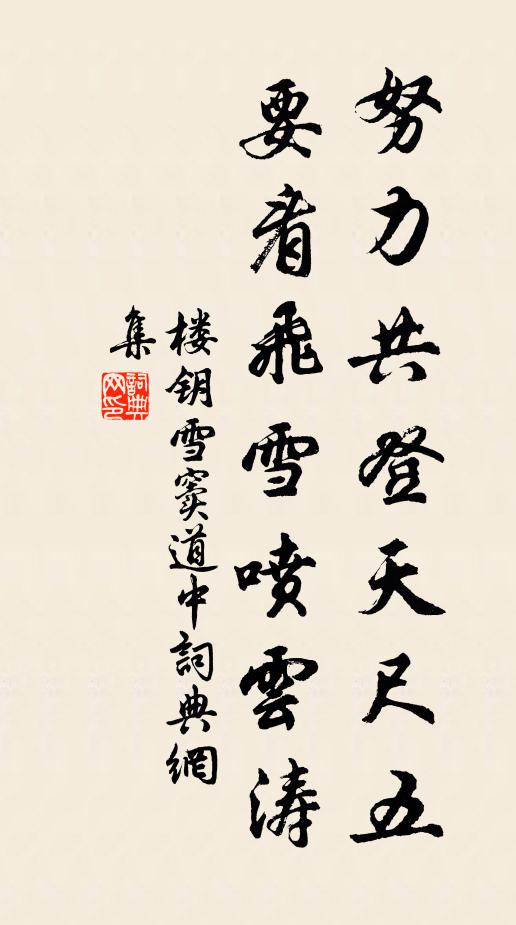 努力共登天尺五
要看飛雪噴雲涛
楼钥雪窦道中詞典網
集
詞典
网印